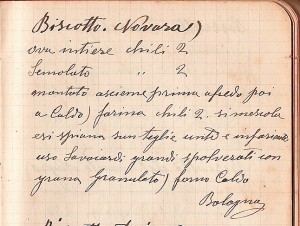 Biscotto. Novara)
ova intiere chili 2
Semolato " 2
montato assieme prima afredo poi
a Caldo) farina chili 2. si mescola
esi spiana sun teglie unte e infarinate
uso Savoiardi grandi spolverati con
grana Granulato) forno Caldo
Bologna